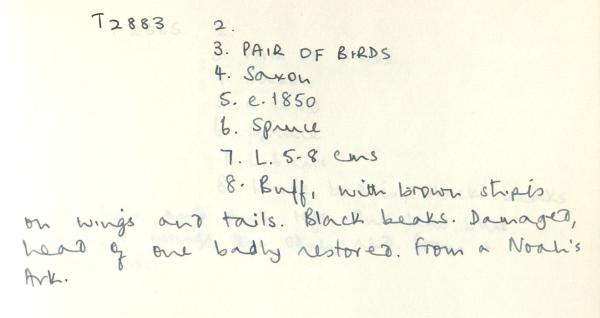 T2883 2.
3. PAIR OF BIRDS
4. Saxon
5. c.1850
6. Spruce
7. L. 5-8 cms
8. Buff, with brown stripes
on wings and tails. Black beaks. Damaged,
head of one badly restored. From a Noah's
Ark.